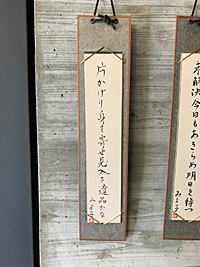 片かげり身を寄せ見入る遺品かな
みよ子
未解決今日もあきらめ明日を待つ
みよ子